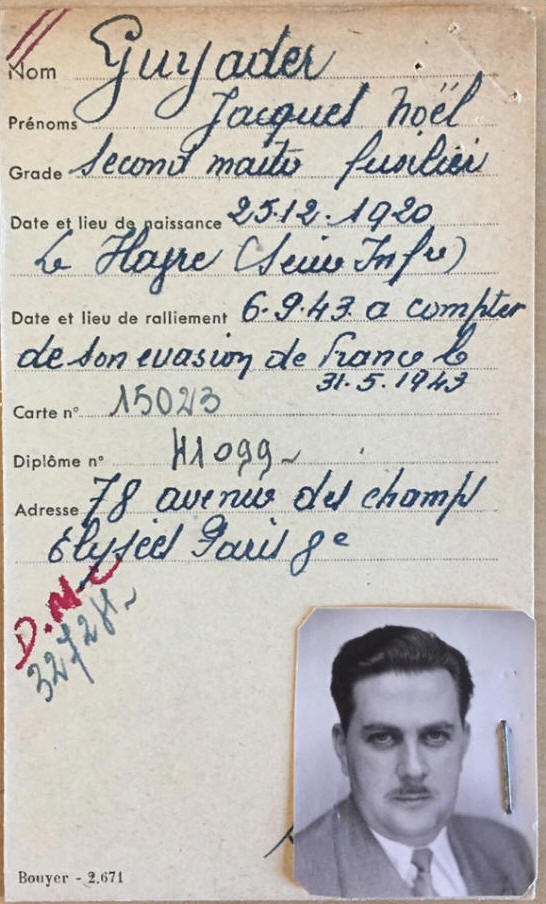 Nom Guyader
Prénoms Jacques Noël
Grade Second maitre fusilier
Date et lieu de naissance 25.12.1920
Le Havre (Seine Infre)
Date et lieu de ralliement 6.9.43 a compter
de son evasion de France le
31.5.1943
Carte n° 15023
Diplôme n° 41099
Adresse 78 avenue des champs
Elysées Paris 8e
D.M.C
32728
Bouyer - 2.671